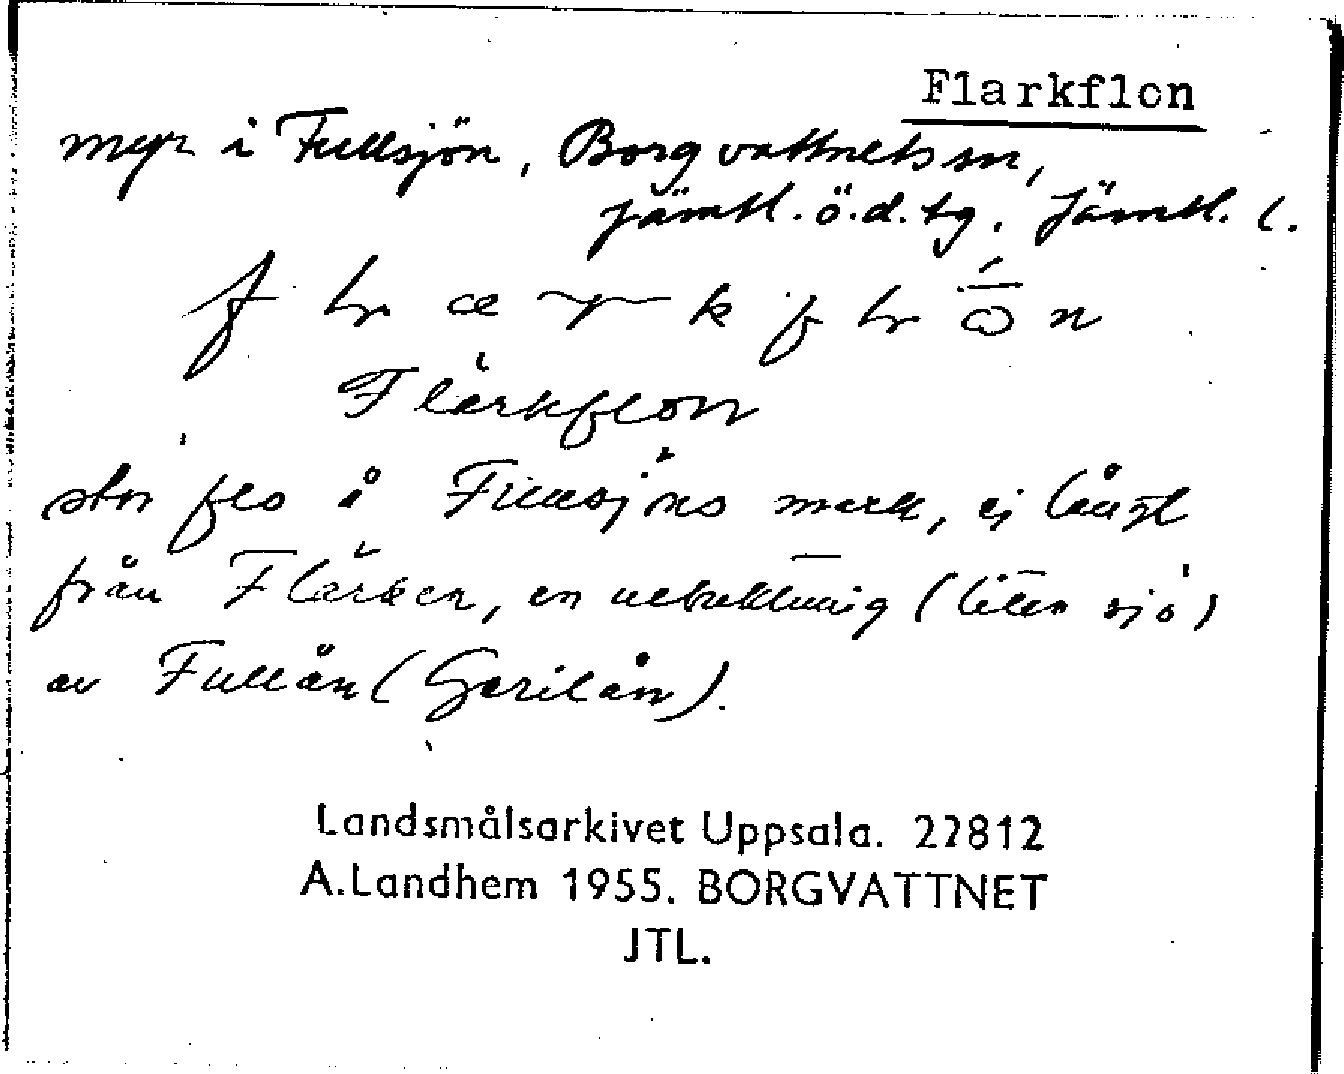 Flarkflon
myr i Fullsjön, Borgvattnets sn,
Jämtl. ö.d. tg. Jämtl. l.
Flärkflon
stor flo å Fullsjöns mark, ej långt
från Flärken, en utvidtning (liten sjö)
av Fullån (Gerilån).
Landsmålsarkivet Uppsala. 22812
A.Landhem 1955. BORGVATTNET
JTL.